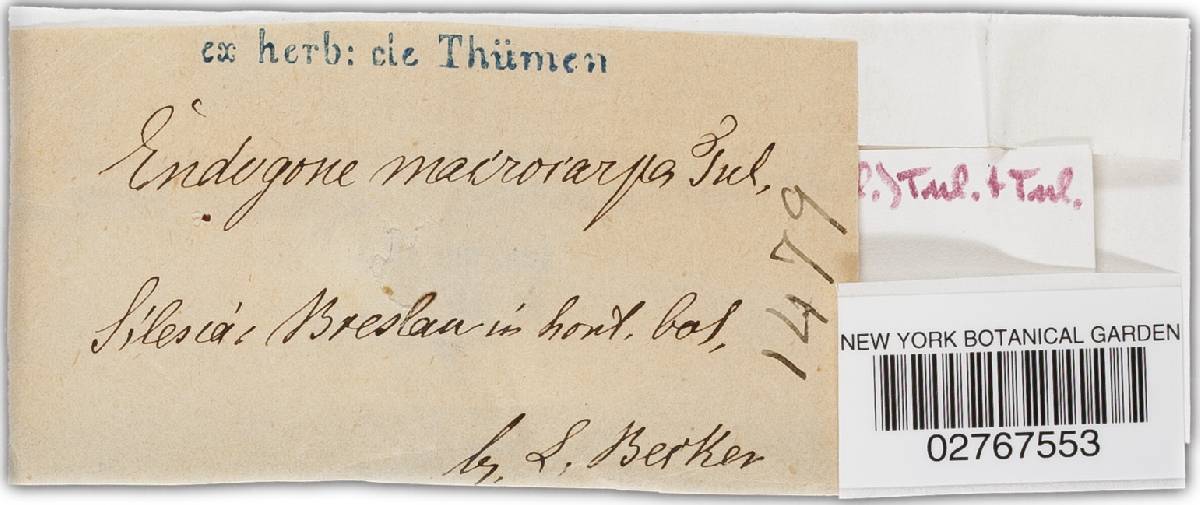 ex herb: de Thümen
Endogone macrocarpa Tul.
Silesia: Breslau in hort. bot.
lg. L. Becker
1479
l.) Tul. & Tul.
NEW YORK BOTANICAL GARDEN
02767553